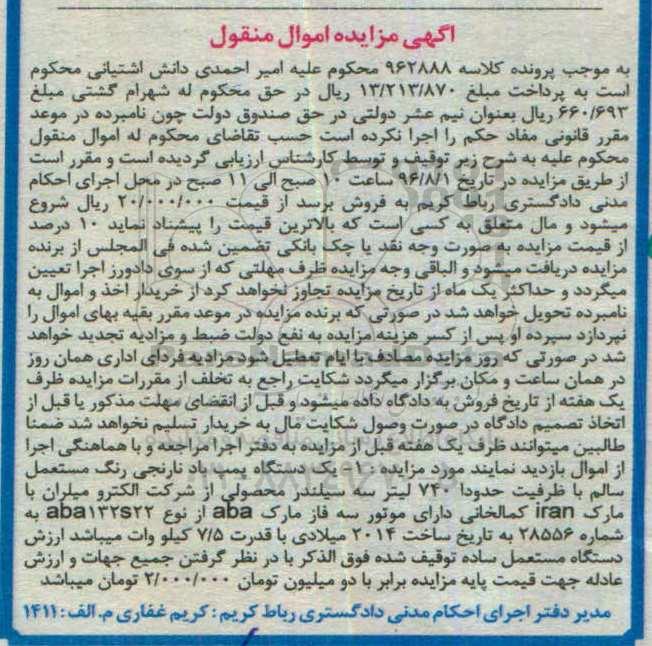 اگهی مزایده اموال منقول
به موجب پرونده کلاسه ۹۶۲۸۸۸ محکوم علیه امیر احمدی دانش اشتیانی محکوم
است به پرداخت مبلغ ۱۳/۲۱۳/۸۷۰ ریال در حق محکوم له شهرام گشتی مبلغ
۶۶۰/۶۹۳ ریال بعنوان نیم عشر دولتی در حق صندوق دولت چون نامبرده در موعد
مقرر قانونی مفاد حکم را اجرا نکرده است حسب تقاضای محکوم له اموال منقول
محکوم علیه به شرح زیر توقیف و توسط کارشناس ارزیابی گردیده است و مقرر است
از طریق مزایده در تاریخ ۹۶/۸/۱ ساعت ۱۰ صبح الی ۱۱ صبح در محل اجرای احکام
مدنی دادگستری رباط کریم به فروش برسد از قیمت ۲۰/۰۰۰/۰۰۰ ریال شروع
میشود و مال متعلق به کسی است که بالاترین قیمت را پیشنهاد نماید ۱۰ درصد
از قیمت مزایده به صورت وجه نقد یا چک بانکی تضمین شده فی المجلس از برنده
مزایده دریافت میشود و الباقی وجه مزایده ظرف مهلتی که از سوی دادورز اجرا تعیین
میگردد و حداکثر یک ماه از تاریخ مزایده تجاوز نخواهد کرد از خریدار اخذ و اموال به
نامبرده تحویل خواهد شد در صورتی که برنده مزایده در موعد مقرر بقیه بهای اموال را
نپردازد سپرده او پس از کسر هزینه مزایده به نفع دولت ضبط و مزادیه تجدید خواهد
شد در صورتی که روز مزایده مصادف با ایام تعطیل شود مزادیه فردای اداری همان روز
در همان ساعت و مکان برگزار میگردد شکایت راجع به تخلف از مقررات مزایده ظرف
یک هفته از تاریخ فروش به دادگاه داده میشود و قبل از انقضای مهلت مذکور یا قبل از
اتخاذ تصمیم دادگاه در صورت وصول شکایت مال به خریدار تسلیم نخواهد شد ضمنا
طالبین میتوانند ظرف یک هفته قبل از مزایده به دفتر اجرا مراجعه و با هماهنگی اجرا
از اموال بازدید نمایند مورد مزایده : ۱- یک دستگاه پمپ باد نارنجی رنگ مستعمل
سالم با ظرفیت حدودا ۷۴۰ لیتر سه سیلندر محصولی از شرکت الکترو میلران با
مارک iran کمالخانی دارای موتور سه فاز مارک aba از نوع aba۱۳۲s۲۲ به
شماره ۲۸۵۵۶ به تاریخ ساخت ۲۰۱۴ میلادی با قدرت ۷/۵ کیلو وات میباشد ارزش
دستگاه مستعمل ساده توقیف شده فوق الذکر با در نظر گرفتن جمیع جهات و ارزش
عادله جهت قیمت پایه مزایده برابر با دو میلیون تومان ۲/۰۰۰/۰۰۰ تومان میباشد
مدیر دفتر اجرای احکام مدنی دادگستری رباط کریم : کریم غفاری م.الف: ۱۴۱۱